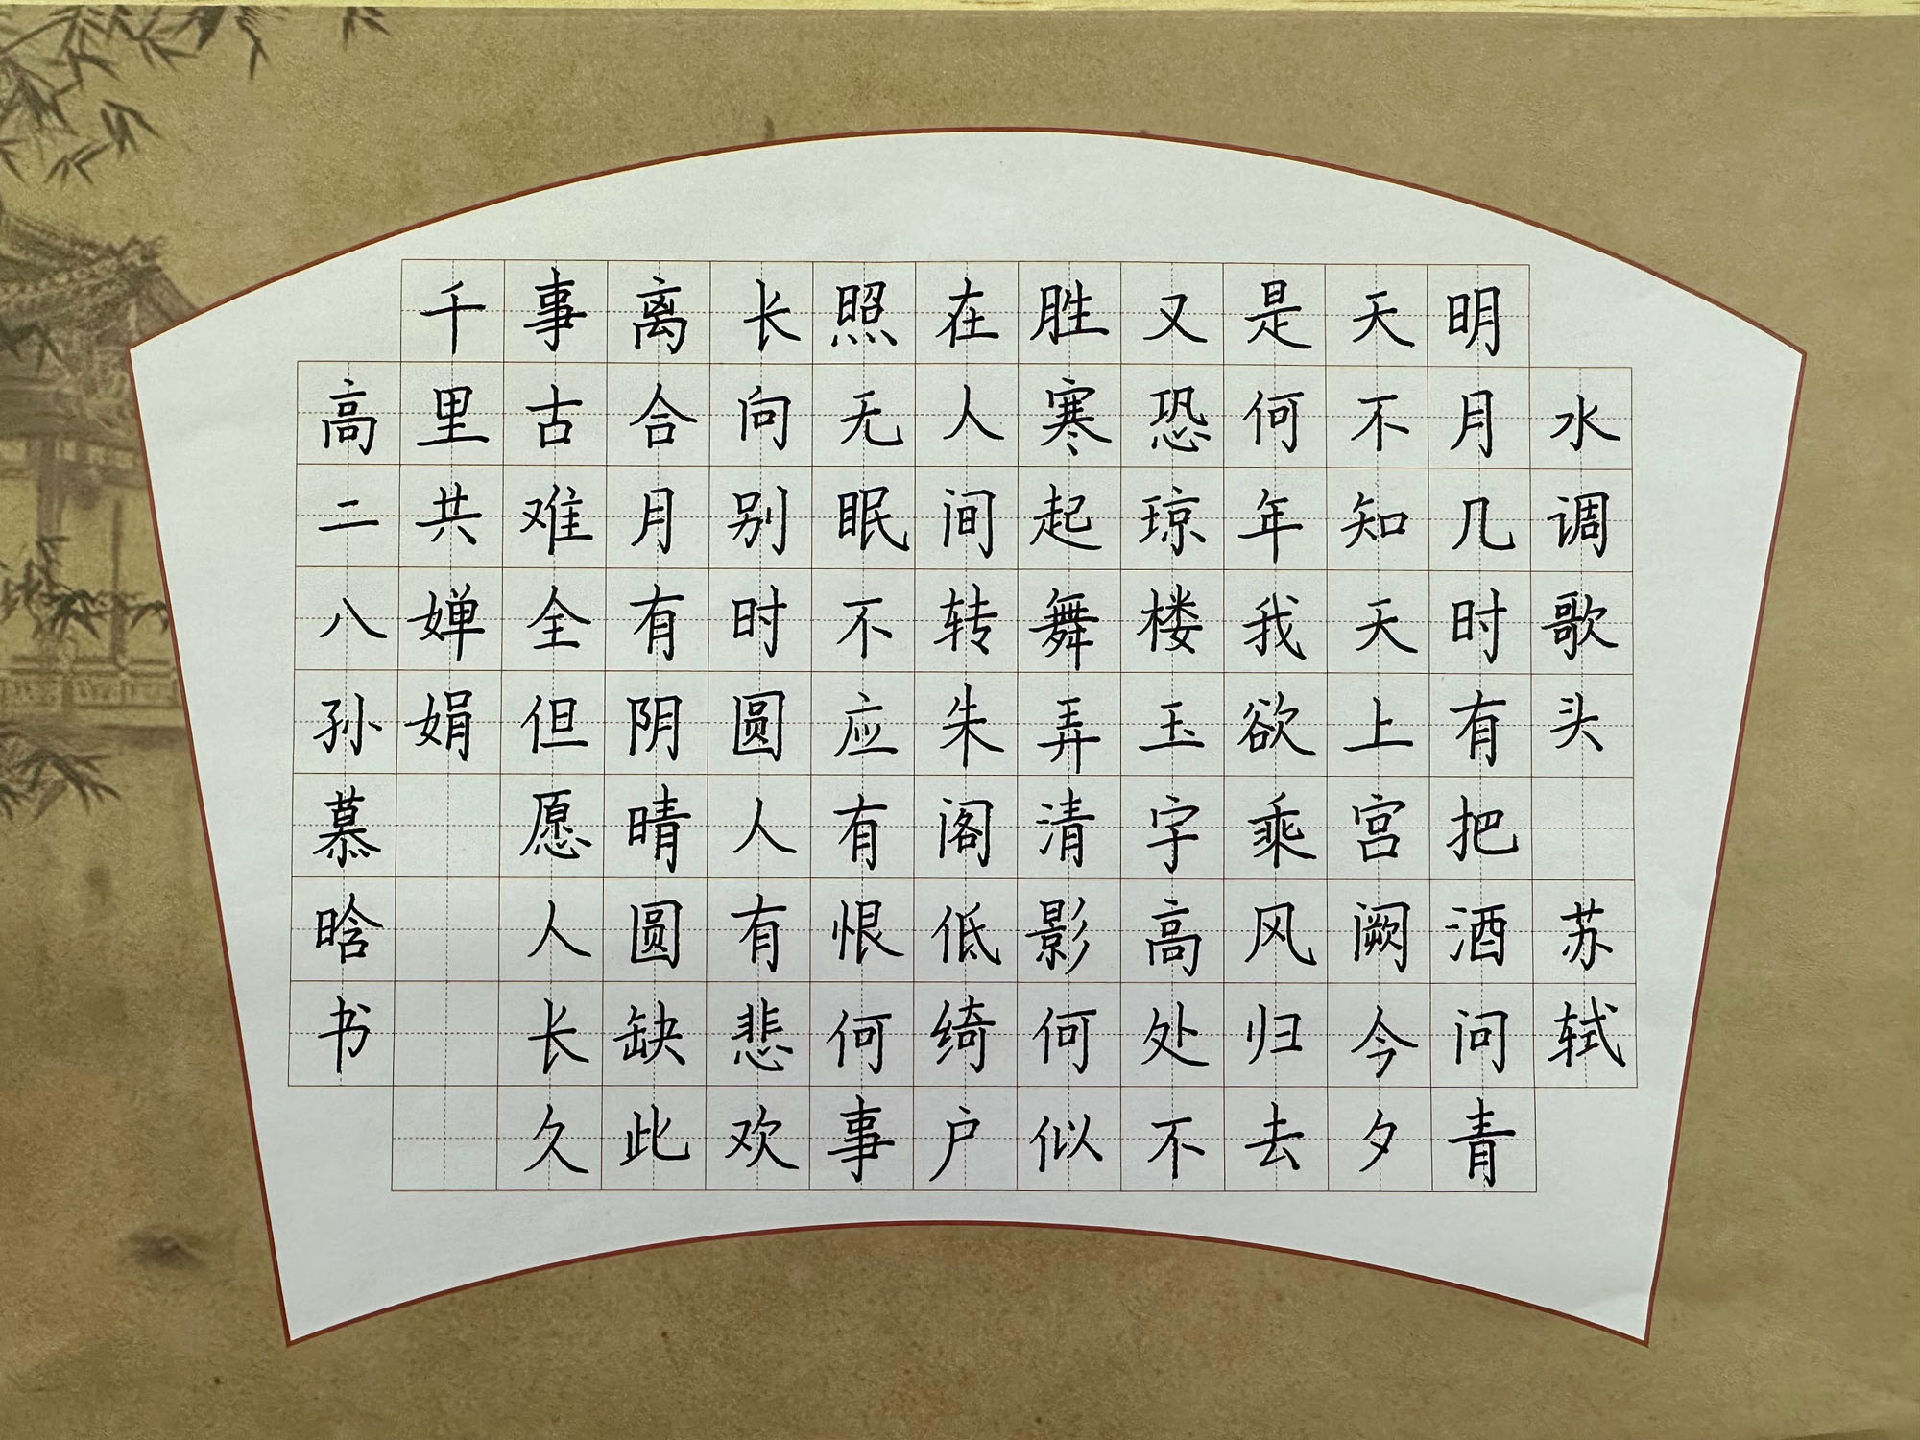 水调歌头 苏轼
明月几时有把酒问青
天不知天上宫阙今夕
是何年我欲乘风归去
又恐琼楼玉宇高处不
胜寒起舞弄清影何似
在人间转朱阁低绮户
照无眠不应有恨何事
长向别时圆人有悲欢
离合月有阴晴圆缺此
事古难全但愿人长久
千里共婵娟
高二八孙慕晗书